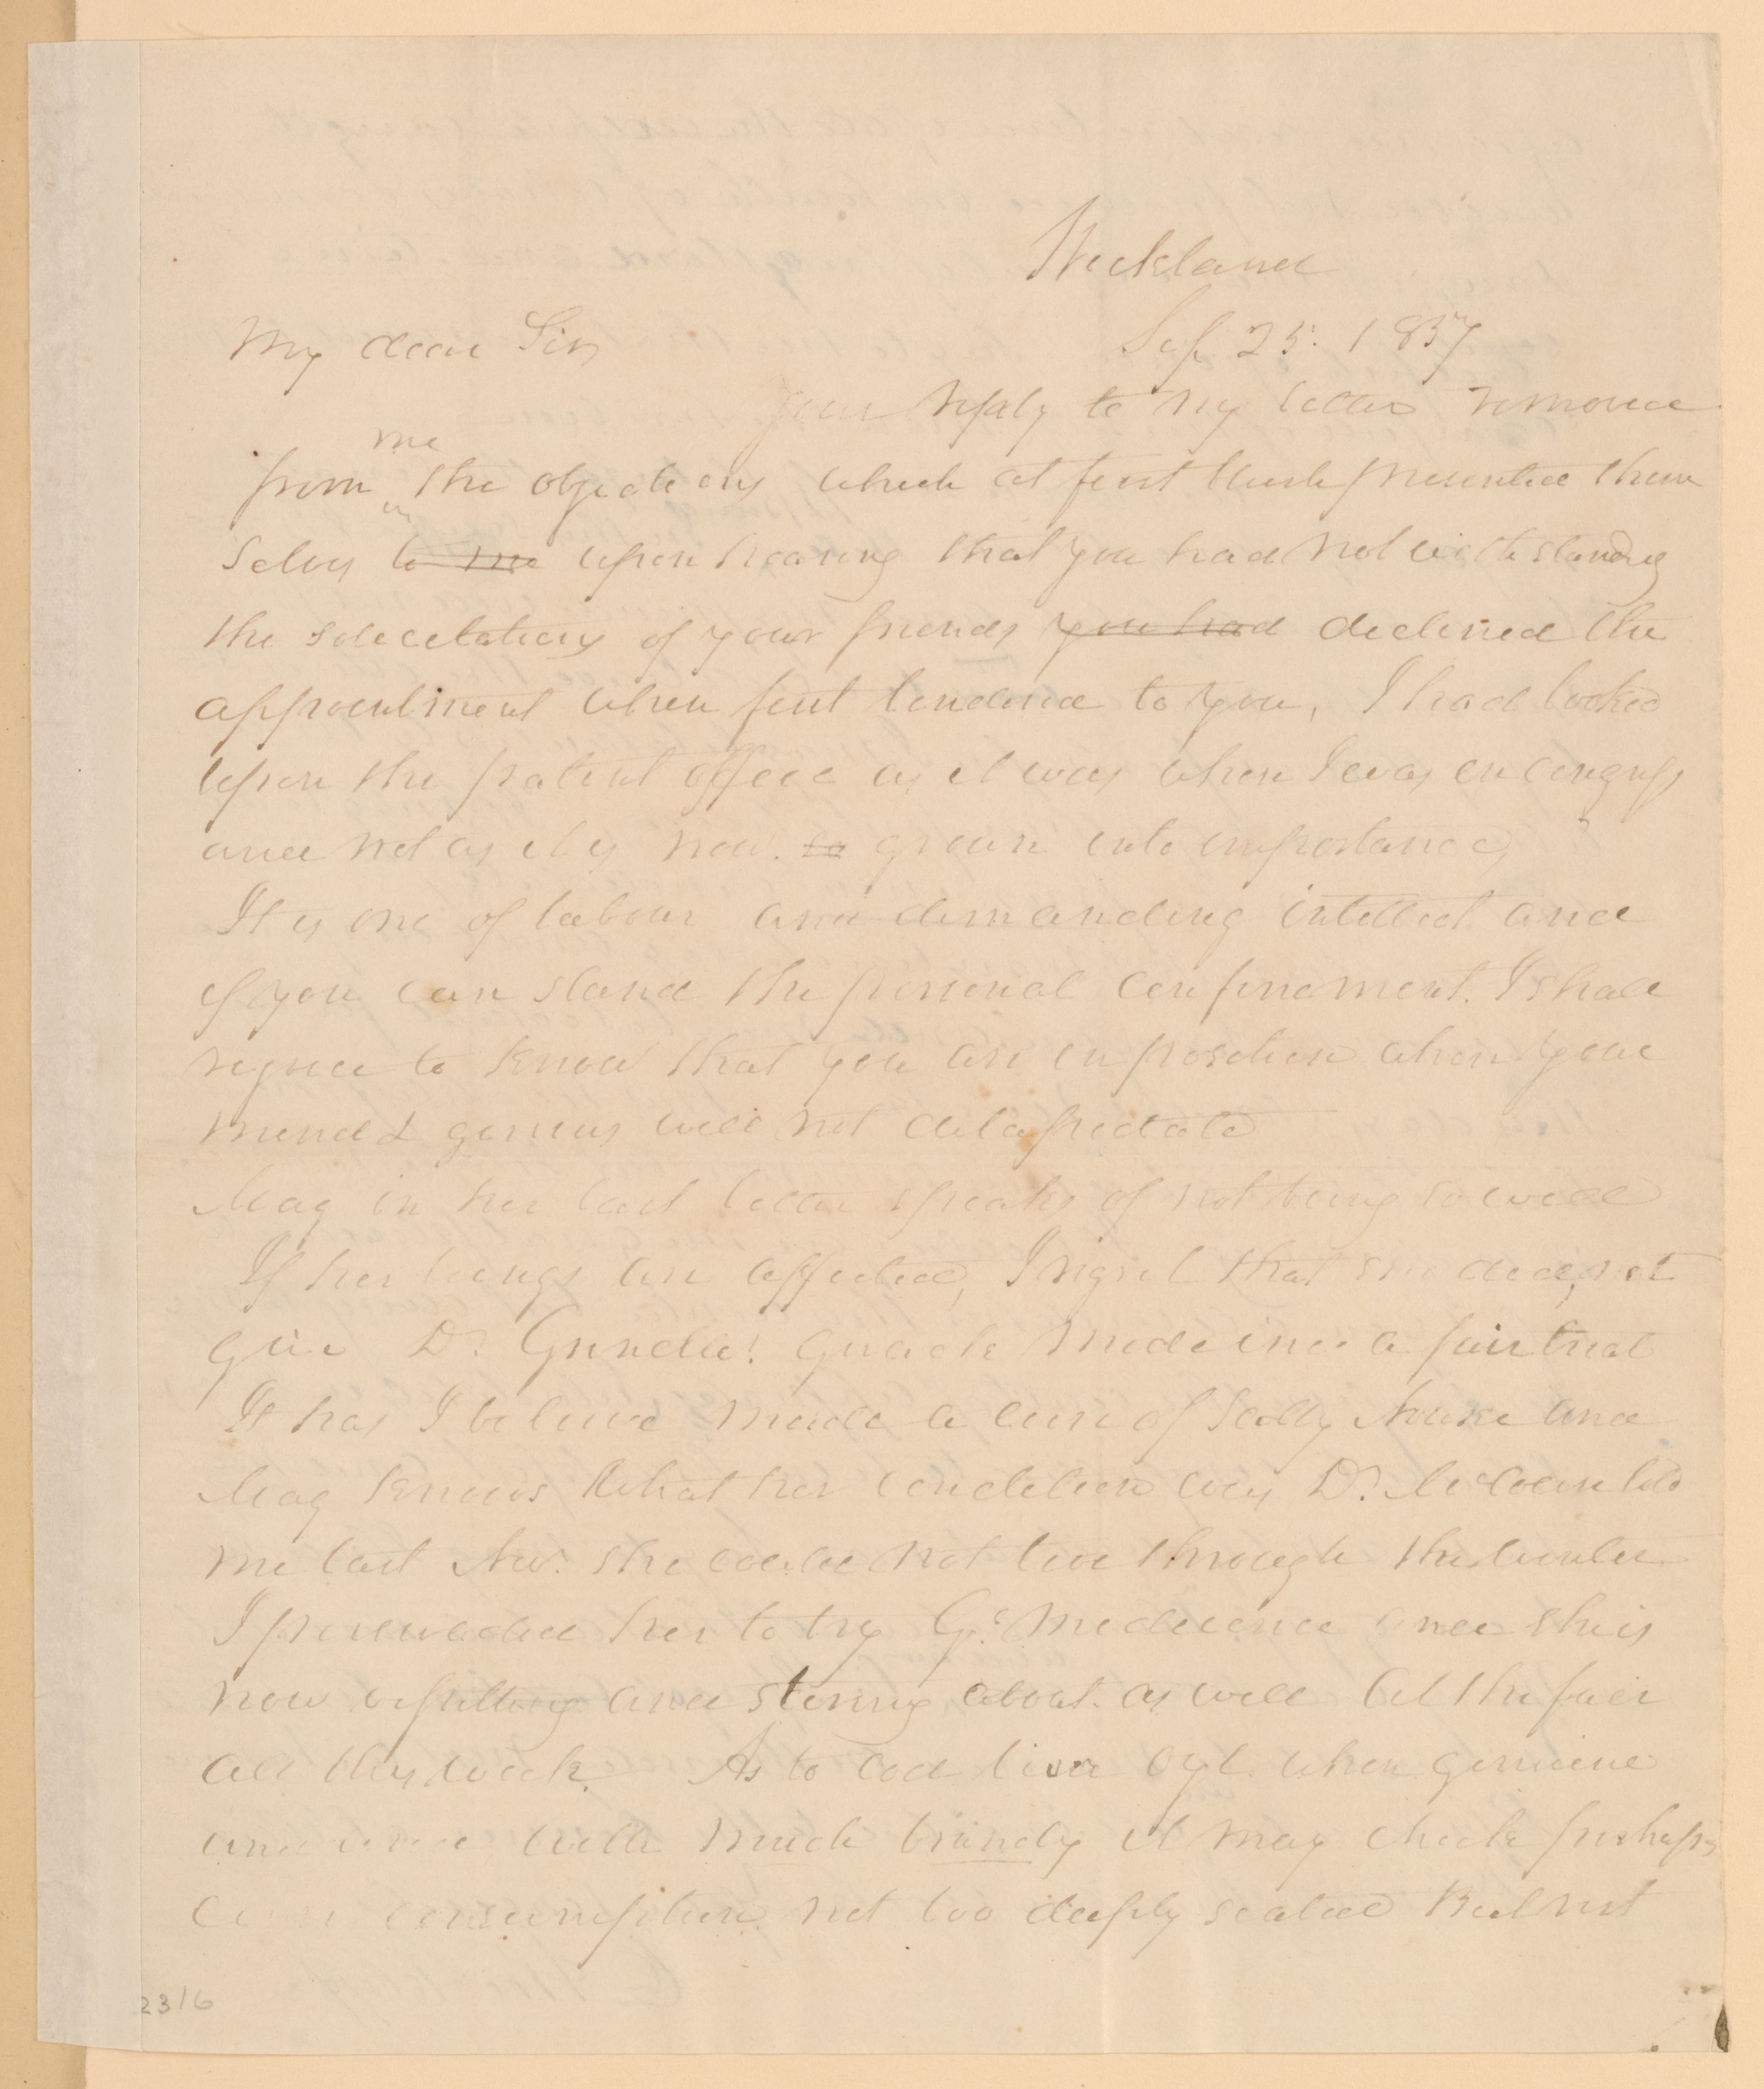 Wickland
Sep. 25. 1857
My dear Sir
your reply to my letter removed
me
from the objections which at first blush presented them
selves to me upon hearing that you had notwithstanding
the solicitations of your friends you had declined the
appointment when first tendered to you, I had looked
upon the patent office as it was when I was in congress
and not as it is now. so grown into importance,
It is one of labour and demanding intellect and
if you can stand the personal confinement. I shall
rejoice to know that you are in position when your
mind & genius will not dilapidate
Mag in her last letter speaks of not being so well
If her lungs are affected, I regret that she did, not
give Dr. quack medicine a fair trial
It has I believe made a cure of Sally and
Mag knows what her condition was, Dr. told
me last Nov. she could not live through the winter
I persuaded her to try G's medicine and she is
now visiting and stirring about. as well At the fair
all this week. As to cod liver oyl. when genuine
and with much brandy it may check perhaps
consumption not too deeply seated But not
2316